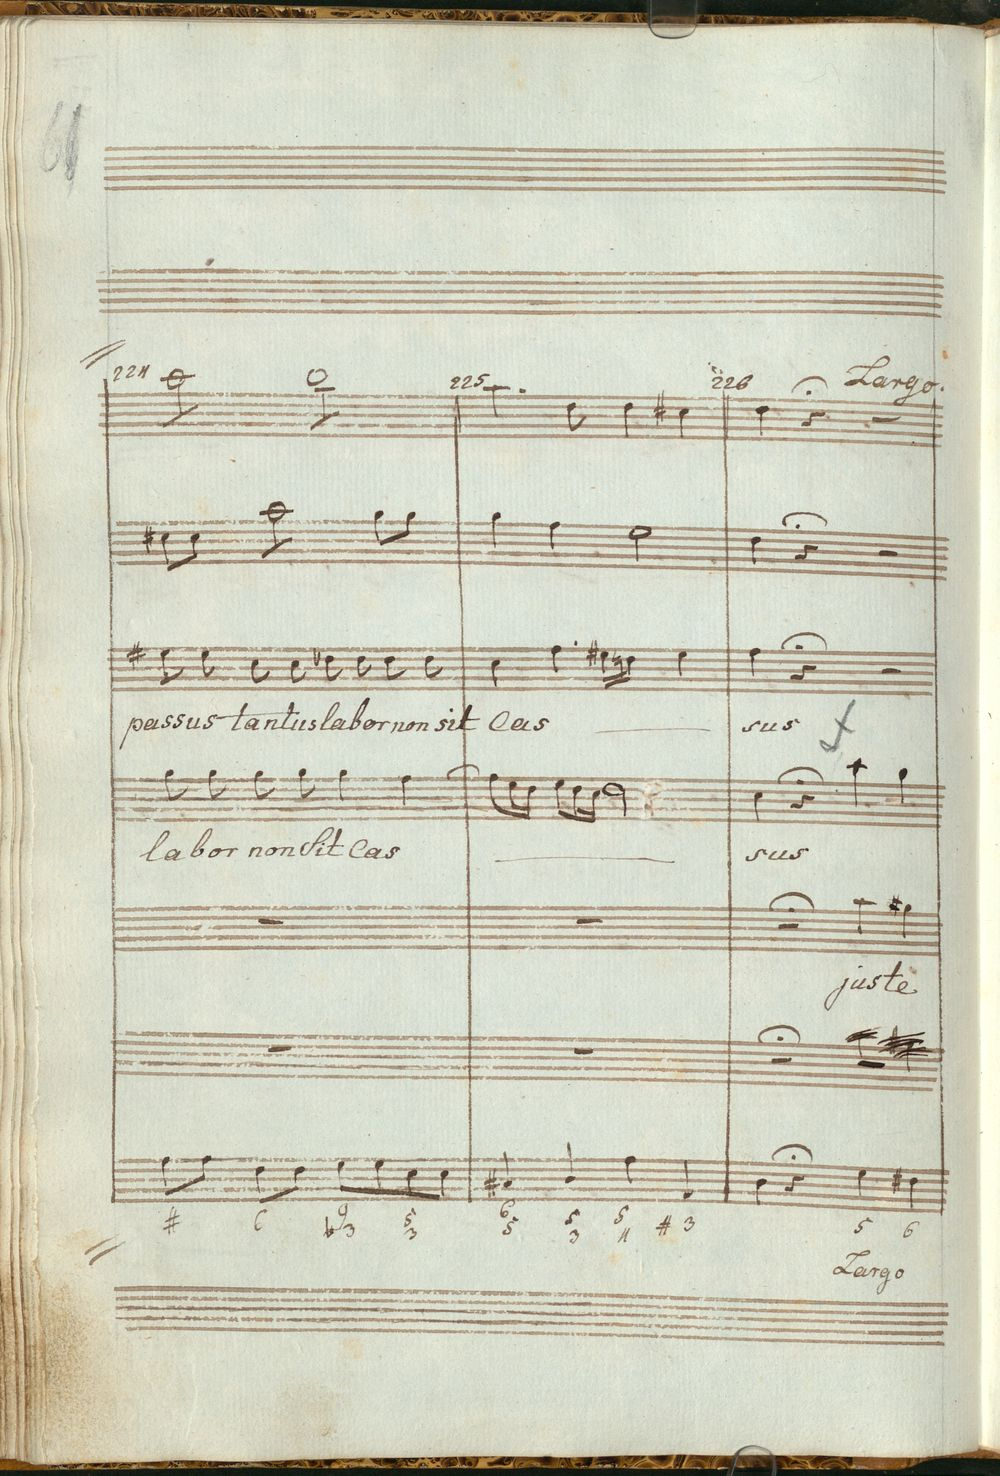 61
224 225 226 Largo.
passus tantus labor non sit Cas sus
labor non Sit Cas sus
juste
# 6 9 5 6 5 5 5 6
b3 3 5 3 4 # 3
Largo